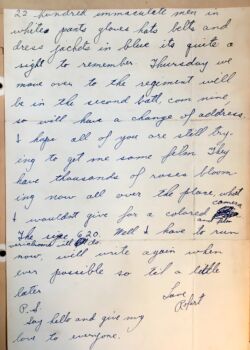 22 hundred immaculate men in
white pants gloves hats belts and
dress jackets in blue its quite a
sight to remember. Thursday we
move over to the regement well
be in the second batt, com nine,
so will have a change of address.
I hope all of you are still try-
ing to get me some film They
have thousands of roses bloom-
ing now all over the place, what
I wouldn't give for a colored camera
and film
The size 620. Well I have to run
now, will write again when
ever possible so til a little
later
Love
Robert
P.S.
Say hello and give my
love to everyone.